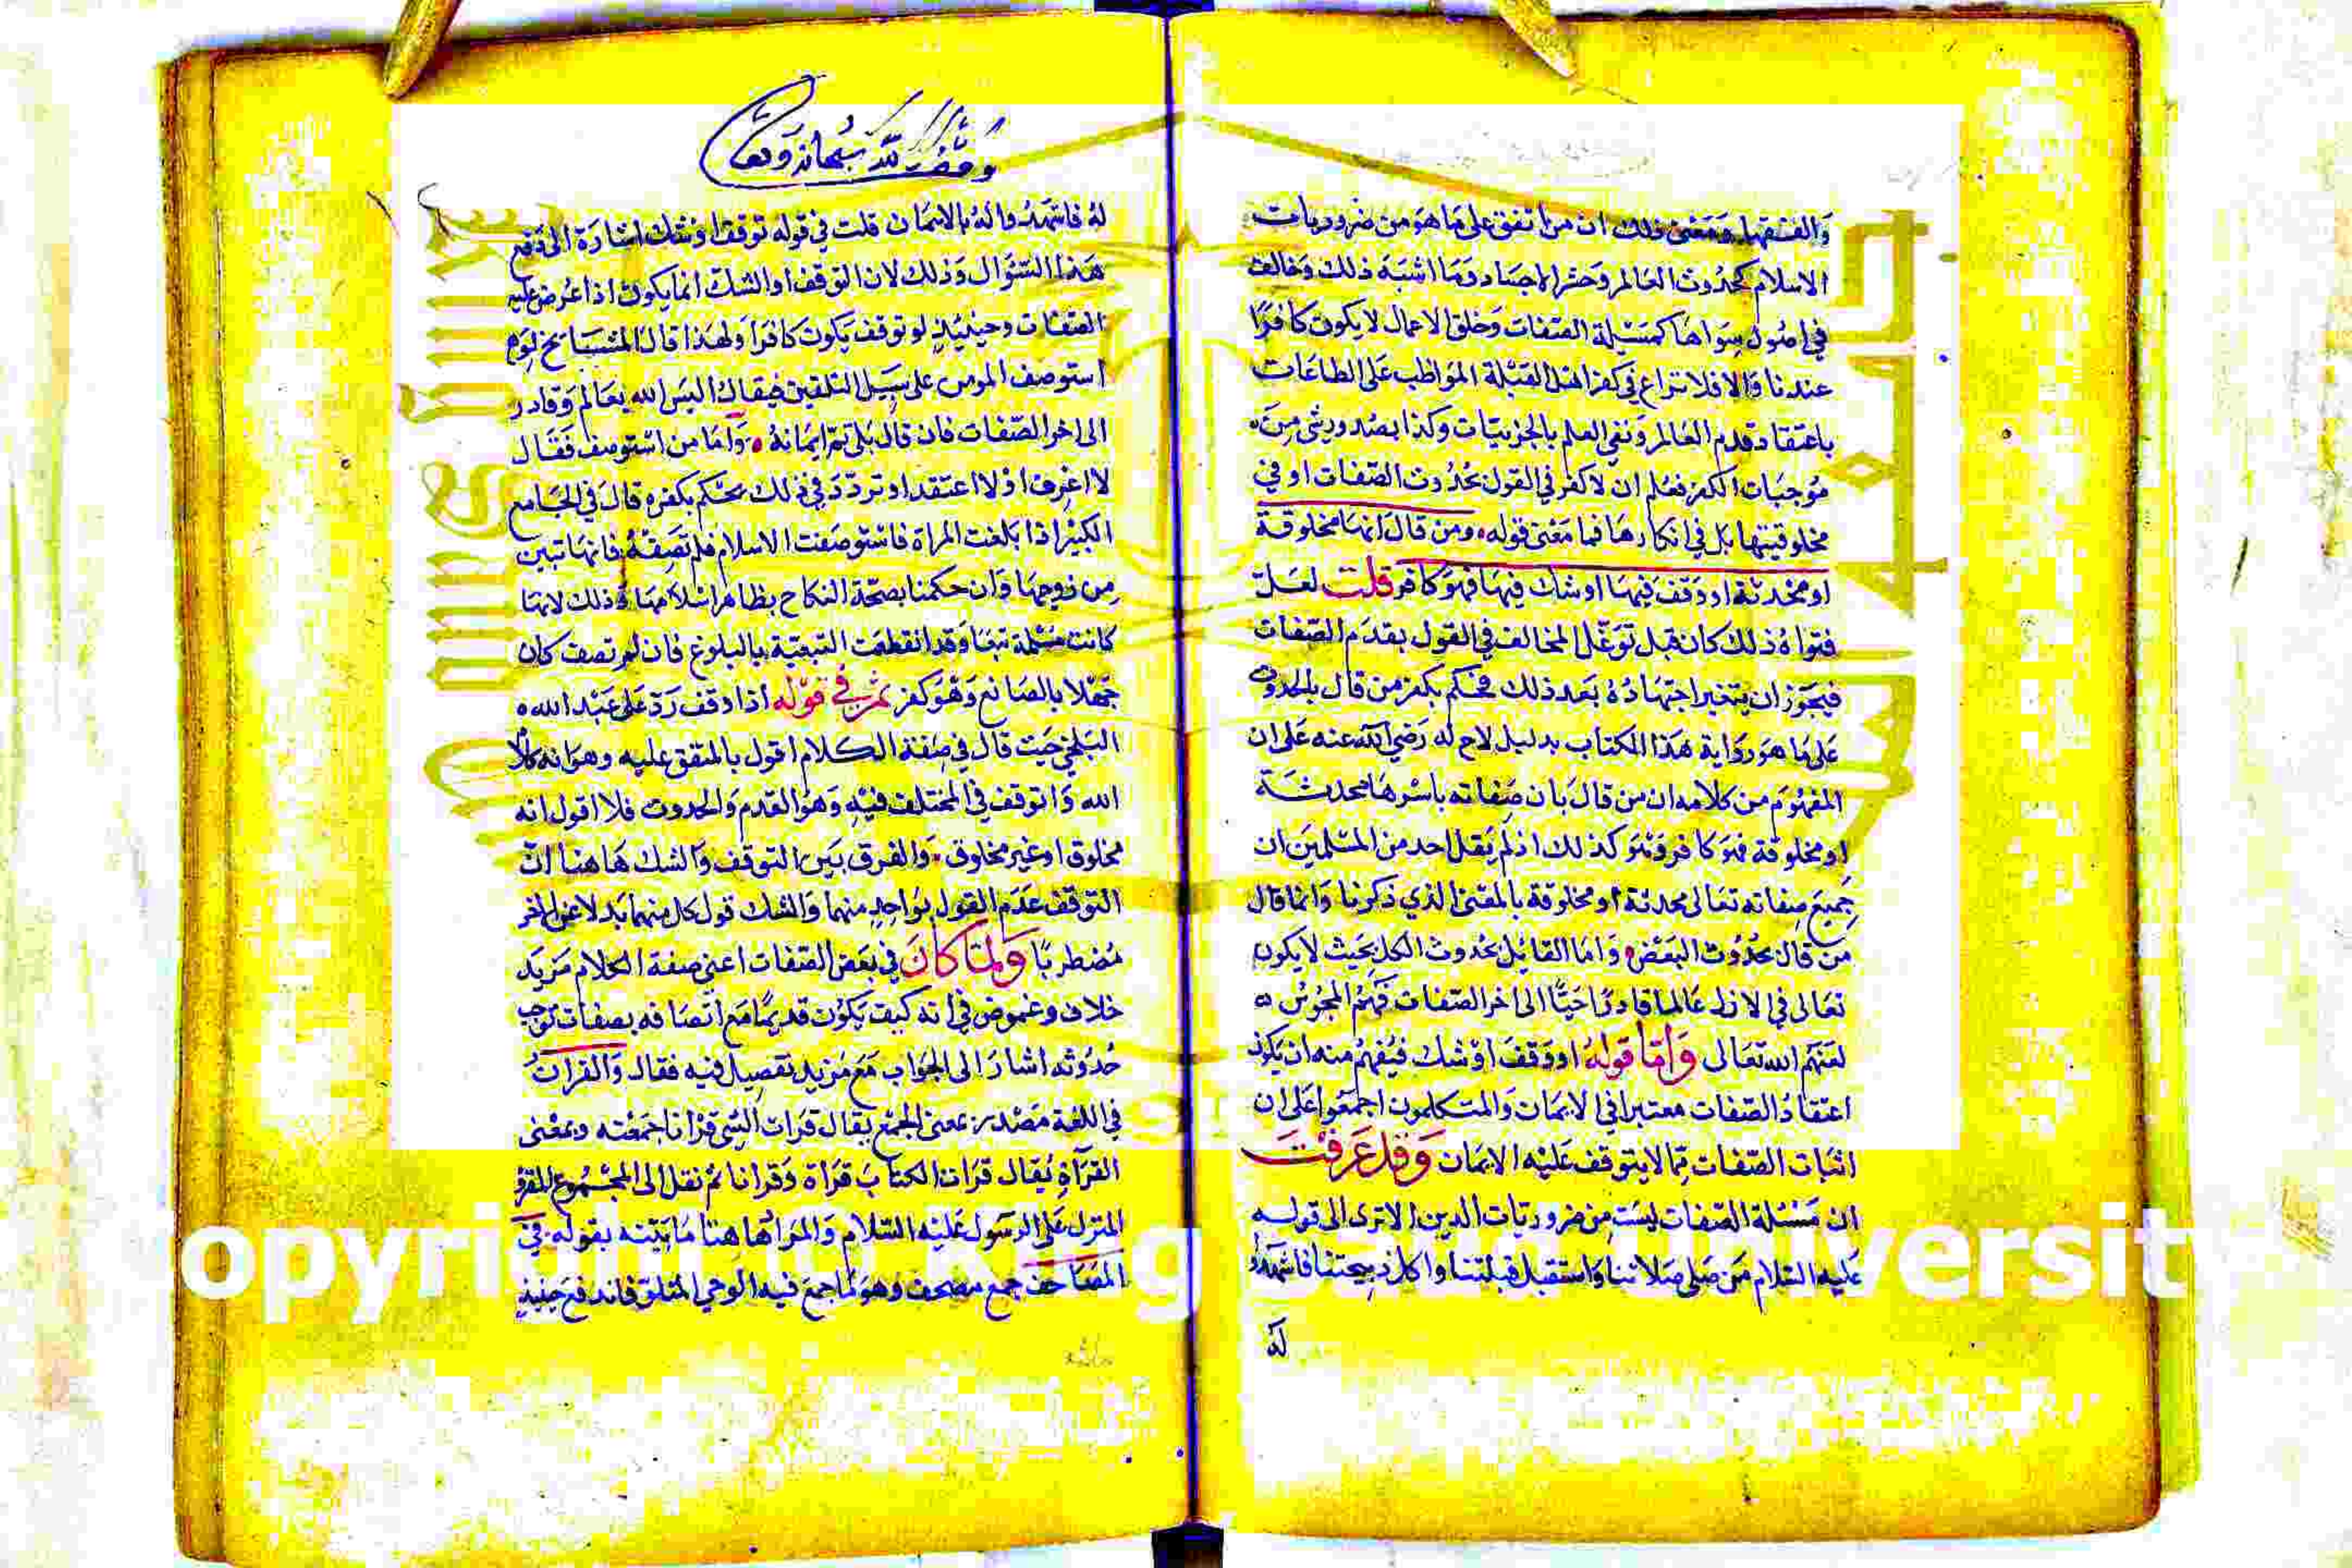 والفقها ومعنى ذلك ان من اتفق على ما هو من ضروريات
الاسلام كحدوث العالم وحشر الاجساد وما اشبه ذلك وخالف
في اصول سواها كمسيلة الصفات وخلق الاعمال لا يكون كافرا
عندنا والا فلا نزاع في كفر اهل القبلة المواظب على الطاعات
باعتقاد قدم العالم ونفي العلم بالجزييات وكذا بصدور شي من
موجبات الكفر فعلم ان لا كفر في القول بحدوث الصفات او في
مخلوقيتها بل في انكارها فما معنى قوله ومن قال انها مخلوقة
او محدثة او وقف فيها او شك فيها فهو كافر قلت لعل
فتواه ذلك كان قبل توغل المخالف في القول بقدم الصفات
فيجوز ان يتغير اجتهاده بعد ذلك فحكم بكفر من قال بالحدوث
على ما هو رواية هذا الكتاب بدليل لاح له رضي الله عنه على ان
المفهوم من كلامه ان من قال بان صفاته باسرها محدثة
او مخلوقة فهو كافر وهو كذلك اذ لم يقل احد من المسلمين ان
جميع صفاته تعالى محدثة او مخلوقة بالمعنى الذي ذكرنا وانما قال
من قال بحدوث البعض واما القايل بحدوث الكل بحيث لا يكون
تعالى في الازل عالما قادرا حيا الى اخر الصفات فهم المجوس
لعنهم الله تعالى واما قوله او وقف او شك فيفهم منه ان يكون
اعتقاد الصفات معتبرا في الايمان والمتكلمون اجمعوا على ان
اثبات الصفات مما لا يتوقف عليه الايمان وقد عرفت
ان مسئلة الصفات ليست من ضروريات الدين الا ترى الى قوله
عليه السلام من صلى صلاتنا واستقبل قبلتنا واكل ذبيحتنا فاشهدوا
له
وقف لله سبحانه وتعالى
له فاشهدوا له بالايمان قلت في قوله توقف او شك اشارة الى دفع
هذا السئوال وذلك لان التوقف او الشك انما يكون اذا عرض عليه
الصفات وحينيذ لو توقف يكون كافرا ولهذا قال المشايخ لو
استوصف المومن على سبيل التلقين فيقال اليس الله بعالم وقادر
الى اخر الصفات فان قال بلى تم ايمانه واما من استوصف فقال
لا اعرف او لا اعتقد او تردد في ذلك يحكم بكفره قال في الجامع
الكبير اذا بلغت المراة فاستوصفت الاسلام فلم تصفه فانها تبين
من زوجها وان حكمنا بصحة النكاح بظاهر اسلامها وذلك لانها
كانت مسلمة تبعا وقد انقطعت التبعية بالبلوغ فان لم تصف كان
جهلا بالصانع وهو كفر ثم في قوله اذا وقف رد على عبد الله
البلخي حيث قال في صفة الكلام اقول بالمتفق عليه وهو انه كلام
الله واتوقف في المختلف فيه وهو القدم والحدوث فلا اقول انه
مخلوق او غير مخلوق والفرق بين التوقف والشك هاهنا ان
التوقف عدم القول بواحد منهما والشك قول كل منهما بدلا عن الاخر
مضطربا ولما كان في بعض الصفات اعني صفة الكلام مزيد
خلاف وغموض في انه كيف يكون قديما مع اتصافه بصفات توجب
حدوثه اشار الى الجواب مع مزيد تفصيل فيه فقال والقران
في اللغة مصدر بمعنى الجمع يقال قرات الشي قرانا جمعته وبمعنى
القراة يقال قرات الكتاب قراة وقرانا ثم نقل الى المجموع المقرو
المنزل على الرسول عليه السلام والمراد هاهنا ما بينه بقوله في
المصاحف جمع مصحف وهو ما جمع فيه الوحي المتلو فاندفع حينيذ
Copyright © King Saud University